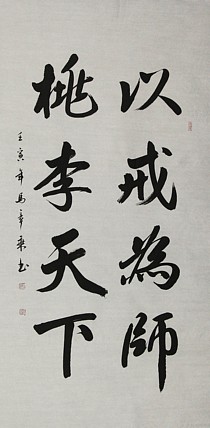 以戒為師
桃李天下
壬寅年馬辛乘书